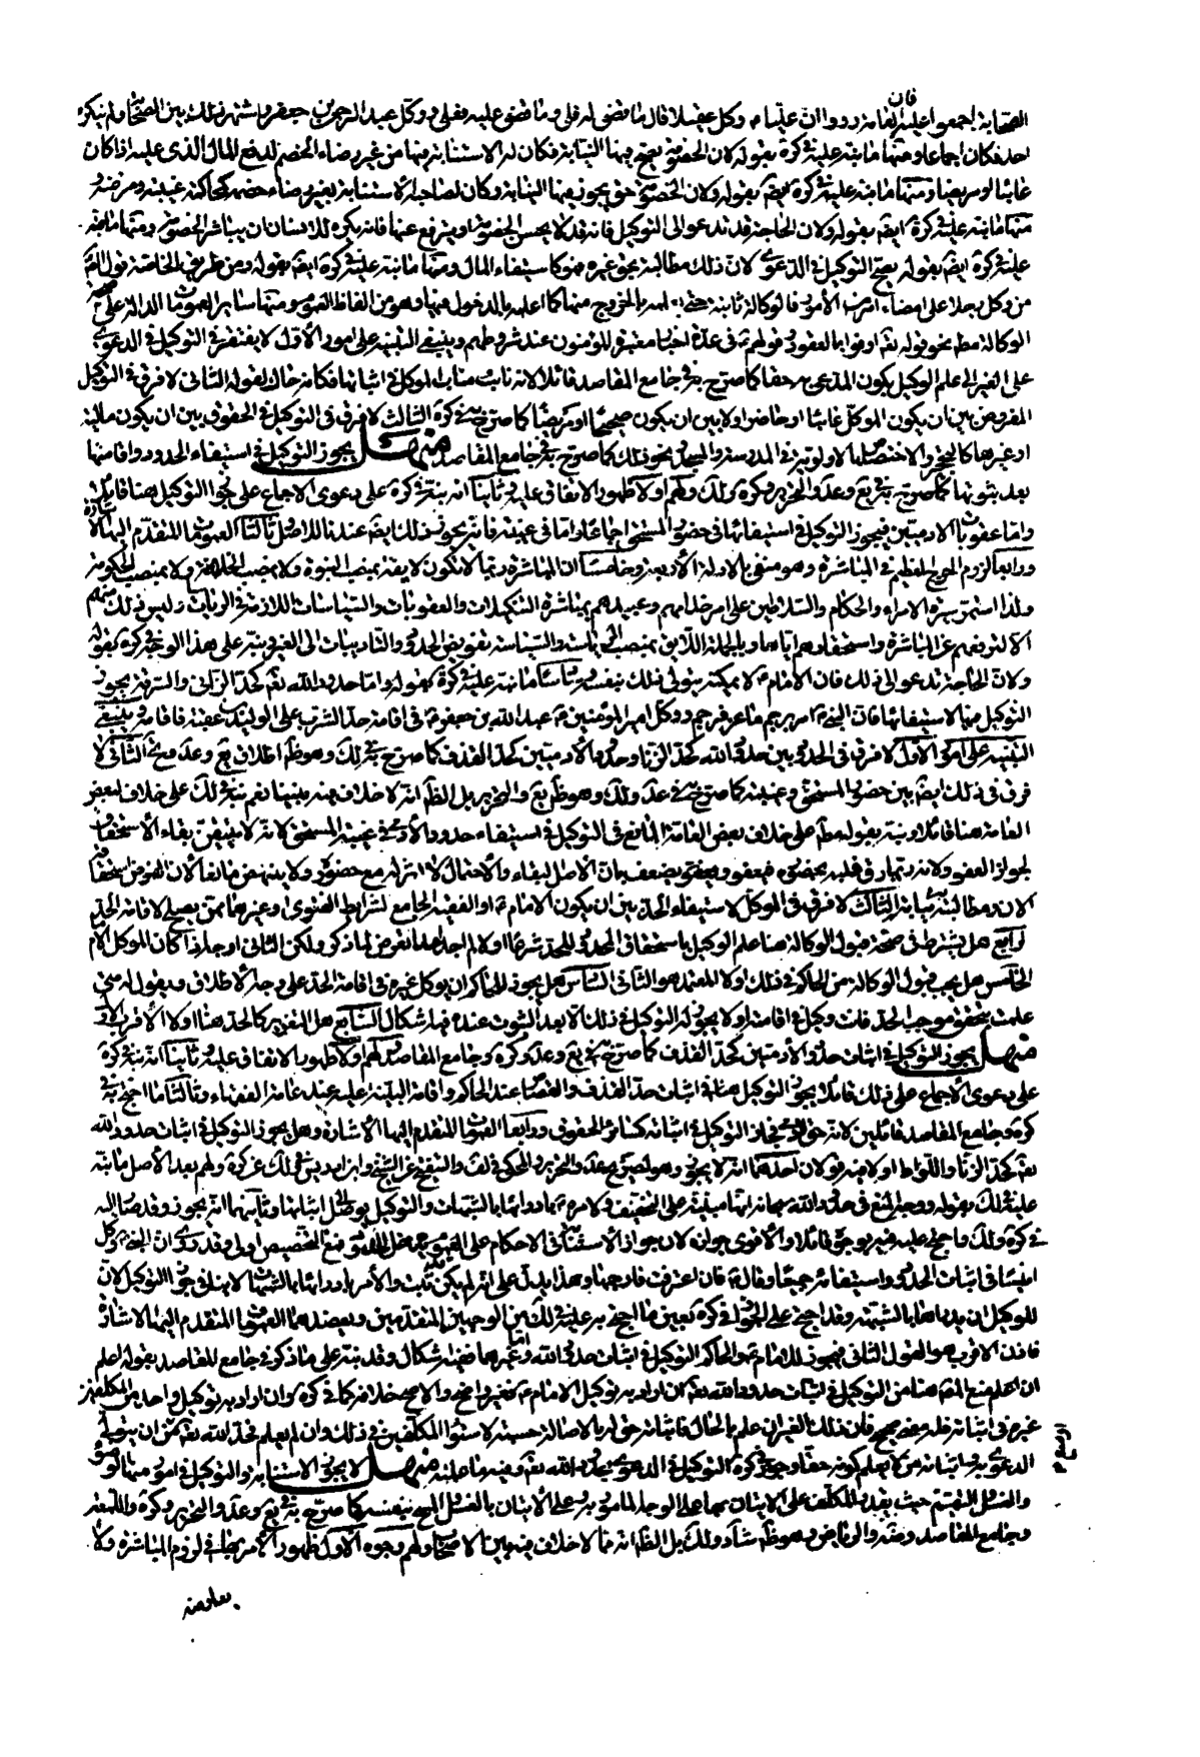 فان
الصحابة اجمعوا عليه لقا نه رووا ان عليا ع وكل عقيلا قال ما قضى له فلى وما قضى عليه فعلى ووكل عبد الرحمن جعفر واشتهر ذلك بين الصحابة ولم ينكره
احد فكان اجماعا ومنها ما نبه عليه في كرة بقوله لان الخصومة يصح فيها النيابة فكان له الاستنابة فيها من غير رضاء الخصم لدفع المال الذى عليه اذا كان
غائبا او مريضا ومنها ما نبه عليه في كرة ايضا بقوله ولان الخصومة حق يجوز فيها النيابة وكان لصاحبه الاستنابة بغير رضاء خصمه كحالة غيبته ومرضه و
منها ما نبه عليه في كرة ايضا بقوله ولان الحاجة قد تدعو الى التوكيل فانه قد لا يحسن الخصومة او يترفع عنها فانه يكره للانسان ان يباشر الخصومة ومنها ما نبه
عليه في كرة ايضا بقوله يصح التوكيل في الدعوى لان ذلك مطالبة بحق غيره فهو كاستيفاء المال ومنها ما نبه عليه في كرة ايضا بقوله ومن طريق الخاصة قول
من وكل رجلا على امضاء امر من الامور فالوكالة ثابتة حتى يعلمه بالخروج منها كما اعلمه بالدخول فيها وهو من الفاظ العموم ومنها سائر العمومات الدالة على صحة
الوكالة مط نحو قوله تعالى اوفوا بالعقود وقولهم ع فى عدة اخبار معتبرة المؤمنون عند شروطهم وينبغى التنبيه على امور الاول لا يفتقر في التوكيل في الدعوى
على الغير الى علم الوكيل بكون المدعى محقا كما صرح به في جامع المقاصد قائلا لانه نائب مناب الموكل في اثباتها فكانه حاك لقوله الثانى لا فرق في التوكيل
المفروض بين ان يكون الموكل غائبا او حاضرا ولا بين ان يكون صحيحا او مريضا كما صرح به في كرة الثالث لا فرق فى التوكيل في الحقوق بين ان يكون مالية
او غيرها كالتحجير والاختصاص بالاولوية في المدرسة والمسجد ونحو ذلك كما صرح به في جامع المقاصد منهل يجوز التوكيل في استيفاء الحدود واقامتها
بعد ثبوتها كما صرح به في يع وعد والتحرير وكرة ولك ولهم اولا ظهور الاتفاق عليه وثانيا انه نبه في كرة على دعوى الاجماع على جواز التوكيل هنا قائلا
واما عقوبات الادميين فيجوز التوكيل في استيفائها فى حضور المستحق اجماعا واما فى غيبته فانه يجوز ذلك ايضا عندنا للاصل وثالثا العمومات المتقدم اليها الاشارة
ورابعا لزوم الحرج العظيم في المباشرة وهو منفى بالادلة الاربعة وخامسا ان المباشرة ربما لا تكون لايقة بمنصب النبوة ولا بمنصب الخلافة ولا بمنصب الحكومة
ولذا استمر سيرة الامراء والحكام والسلاطين على امر خدامهم وعبيدهم بمباشرة التنكيلات والعقوبات والسياسات اللازمة في الرياسات وليس ذلك منهم
الا لترفعهم عن المباشرة واستخفافهم اياها وبالجملة اللائق بمنصب الرياسة والسياسة تفويض الحدود والتاديبات الى الغير ونبه على هذا الوجه في كرة بقوله
ولان الحاجة تدعو الى ذلك فان الامام ع لا يمكنه يتولى ذلك بنفسه وسادسا ما نبه عليه في كرة بقوله واما حدود الله تعالى كحد الزانى والسرقة يجوز
التوكيل فيها لاستيفائها فان النبى ص امر برجم ماعز فرجم ووكل امير المؤمنين ع عبد الله بن جعفر في اقامة حد الشرب على الوليد بن عقبة فاقامه وينبغى
التنبيه على امور الاول لا فرق فى الحدود بين حدود الله كحد الزنا وحدود الادميين كحد القذف كما صرح به في لك وهو ظاهر اطلاق يع وعد الثانى لا
فرق فى ذلك ايضا بين حضور المستحق وغيبته كما صرح به في عد ولك وهو ظاهر يع والتحرير بل الظاهر انه لا خلاف فيه بيننا نعم نبه في لك على خلاف لبعض
العامة هنا قائلا ونبه بقوله مط على خلاف بعض العامة المانع فى التوكيل في استيفاء حدود الادمى في غيبة المستحق لانه لا يتيقن بقاء الاستحقاق
لجواز العفو ولانه ربما رق قلبه بحضوره فيعفو ويضعف بان الاصل البقاء والاحتمال لا اثر له مع حضوره ولا ينتهض مانعا لان المفروض استحقاقه
الان ومطالبته بنيابته الثالث لا فرق في الموكل لاستيفاء الحد بين ان يكون الامام ع او الفقيه الجامع لشرايط الفتوى او غيرهما ممن يصلح لاقامة الحد
الرابع هل يشترط فى صحة قبول الوكالة هنا علم الوكيل باستحقاق المحدود للحد شرعا او لا لم اجد احدا تعرض لما ذكر ولكن الثانى اوجه اذا كان الموكل الامام
الخامس هل يجب قبول الوكالة من الحاكم فى ذلك او لا المعتمد هو الثانى السادس هل يجوز للحاكم ان يوكل غيره فى اقامة الحد على وجه الاطلاق ويقول له متى
علمت بتحقق موجب الحد فانت وكيل في اقامته او لا يجوز له التوكيل في ذلك الا بعد الثبوت عنده فيه اشكال السابع هل التعزير كالحد هنا او لا الاقرب الاول
منهل يجوز التوكيل في اثبات حدود الادميين كحد القذف كما صرح به في يع وعد وكرة وجامع المقاصد ولهم اولا ظهور الاتفاق عليه وثانيا انه نبه في كرة
على دعوى الاجماع على ذلك قائلا يجوز التوكيل هنا في اثبات حد القذف والقصاص عند الحاكم واقامة البينة عليه عند عامة الفقهاء وثالثا ما احتج به في
كرة وجامع المقاصد قائلين لانه حق ادمى فجاز التوكيل في اثباته كسائر الحقوق ورابعا العمومات المتقدم اليها الاشارة وهل يجوز التوكيل في اثبات حدود الله
تعالى كحد الزنا واللواط او لا فيه قولان احدهما انه لا يجوز وهو لصريح عد والتحرير والمحكى في لف والتنقيح عن الشيخ وابن ادريس في لك عن كرة ولهم بعد الاصل ما نبه
عليه في لك بقوله ووجه المنع في حدود الله سبحانه انها مبنية على التخفيف ولامره ع بدرءها بالشبهات والتوكيل يوصل الى اثباتها وثانيهما انه يجوز وقد صار اليه
في كرة ولك واحتج عليه فيه بوجوه قائلا والاقوى جوازه لان جواز الاستنابة فى الاحكام على العموم يدخل الحدود فمع التخصيص اولى وقد روى ان النبى ص وكل
انيسا في اثبات الحدود واستيفائه جميعا وقال ص فان اعترفت فارجمها وهذا يدل على انه لم يكن قد ثبت والامر بدرءها بالشبهات لا ينافى جواز التوكيل لان
للوكيل ان يدراها بالشبهة وقد احتج على الجواز في كرة بعين ما احتج به عليه في لك من الوجهين المتقدمين ويعضدهما العمومات المتقدم اليها الاشارة
فاذن الاقرب هو القول الثانى فيجوز للامام ع والحاكم التوكيل في اثبات حدود الله واما غيرهما ففيه اشكال وقد نبه على ما ذكر في جامع المقاصد بقوله اعلم
ان اطلاق منع المصنف هنا من التوكيل في اثبات حدود الله تعالى ان اراد به توكيل الامام ع فغير واضح والاصح خلافه كما فى كرة وان اراد به توكيل واحد من المكلفين
غيره في اثباته فله وجه صحيح فان ذلك الغير ان علم بالحال فاثباته حق له بالاصالة حسبة لاستواء المكلفين في ذلك وان لم يعلم فحد الله تعالى من ان يتولى
الدعوى به واثباته من لا يعلم كونه حقا وجوز في كرة التوكيل في الدعوى بحدود الله تعالى وفيه ما علمته منهل لا يجوز الاستنابة والتوكيل في امور منها الوضوء
والغسل والتيمم حيث يقدر المكلف على الاتيان بها على الوجه المامور به وعلى الاتيان بالغسل والمسح بنفسه كما صرح به في يع وعد والتحرير وكرة واللمعة
وجامع المقاصد وضه والرياض وهو ظاهر شاد ولك بل الظاهر انه مما لا خلاف فيه بين الاصحاب ولهم وجوه الاول ظهور الامر بها في لزوم المباشرة ولا
يعارضه